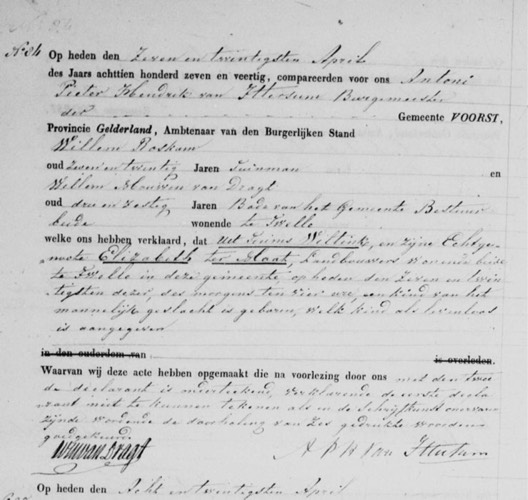 N° 84
Op heden den Zeven en twintigsten April
des Jaars achttien honderd zeven en veertig, compareerden voor ons Antoni
Pieter Hendrik van Ittersum Burgemeester
der Gemeente VOORST,
Provincie Gelderland, Ambtenaar van den Burgerlijken Stand
Willem Roskam
oud Zeven en twintig Jaren Tuinman en
Willem van Dragt
oud drie en zestig Jaren Bode van het Gemeente Bestuur
beide wonende te Twello
welke ons hebben verklaard, dat uit Teunis Weltink, en zijne Echtge-
noote Elizabeth ter Maat, Landbouwers wonende beide
te Twello in deze gemeente, op heden den Zeven en twin
tigsten dezer, des morgens ten vier ure, een kind van het
mannelijk geslacht is geboren, welk kind als levenloos
is aangegeven
in den ouderdom van is overleden.
Waarvan wij deze acte hebben opgemaakt die na voorlezing door ons met den twee
de declarant is onderteekend, verklarende de eerste decla
rant niet te kunnen teekenen als in de Schrijfkunst onervaren
zijnde wordende de doorhaling van zes gedrukte woorden
goedgekeurd
WM van Dragt
A P H van Ittersum
Op heden den Acht en twintigsten April